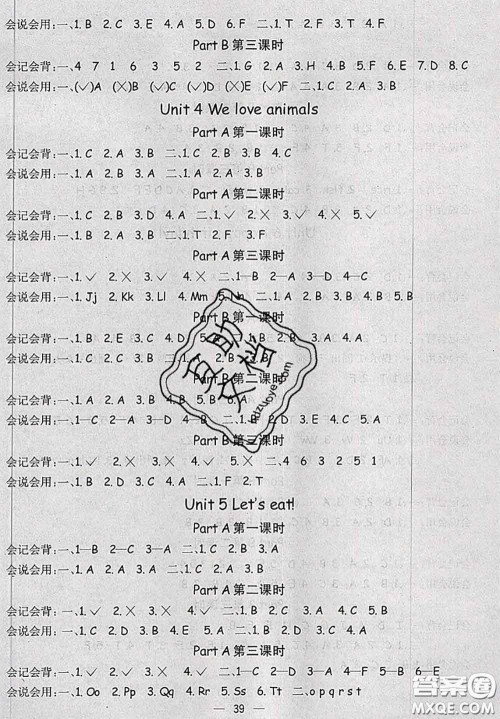 会说会用:一、1.C 2.B 3.E 4.A 5.D 6.F 二、1.T 2.F 3.T 4.F
Part B 第三课时
会记会背:一、4 7 1 6 3 5 2 二、1.G 2.A 3.H 4.B 5.F 6.E 7.D 8.C
会说会用:一、(✓)A (✗)B (✓)C (✓)D (✗)E (✓)F 二、1.C 2.A 3.B
Unit 4 We love animals
Part A 第一课时
会记会背:一、1.C 2.A 3.B 二、1.B 2.A 3.B 4.C
会说会用:一、1.C 2.A 3.B 二、1.A 2.B 3.A
Part A 第二课时
会记会背:一、1.B 2.F 3.D 4.A 二、1.✓ 2.✗ 3.✗ 4.✗ 5.✓
会说会用:一、1.B 2.D 3.C 4.A 二、1.T 2.F 3.F
Part A 第三课时
会记会背:一、1.✓ 2.✗ 3.✓ 4.✗ 二、1—B 2—A 3—D 4—C
会说会用:一、1.Jj 2.Kk 3.Ll 4.Mm 5.Nn 二、1.C 2.B 3.A 4.B 5.C
Part B 第一课时
会记会背:一、1.B 2.E 3.C 4.D 二、1.C 2.B 3.A 4.A
会说会用:一、1.C 2.D 3.A 4.B 二、1.C 2.B 3.A
Part B 第二课时
会记会背:一、1.A 2.A 3.B 4.B 5.B 二、1.B 2.A 3.A
会说会用:一、1—C 2—A 3—D 4—B 二、1.B 2.D 3.E 4.C 5.A
Part B 第三课时
会记会背:一、1.✓ 2.✗ 3.✓ 4.✗ 5.✗ 二、4 6 3 2 5 1
会说会用:一、1.A 2.C 3.A 4.C 二、1.F 2.T
Unit 5 Let's eat!
Part A 第一课时
会记会背:一、1—B 2—C 3—A 二、1.C 2.B 3.A
会说会用:一、1.A 2.A 3.A 二、1.B 2.A 3.B
Part A 第二课时
会记会背:一、1.✓ 2.✗ 3.✗ 4.✓ 二、1.B 2.B 3.A
会说会用:一、1.C 2.D 3.A 4.B 二、1.B 2.C 3.A
Part A 第三课时
会记会背:一、1.✓ 2.✗ 3.✓ 4.✗ 二、1—C 2—A 3—D 4—F 5—B 6—E
会说会用:一、1.Oo 2.Pp 3.Qq 4.Rr 5.Ss 6.Tt 二、o p q r s t
— 39 —
答案圈
MXQE.COM